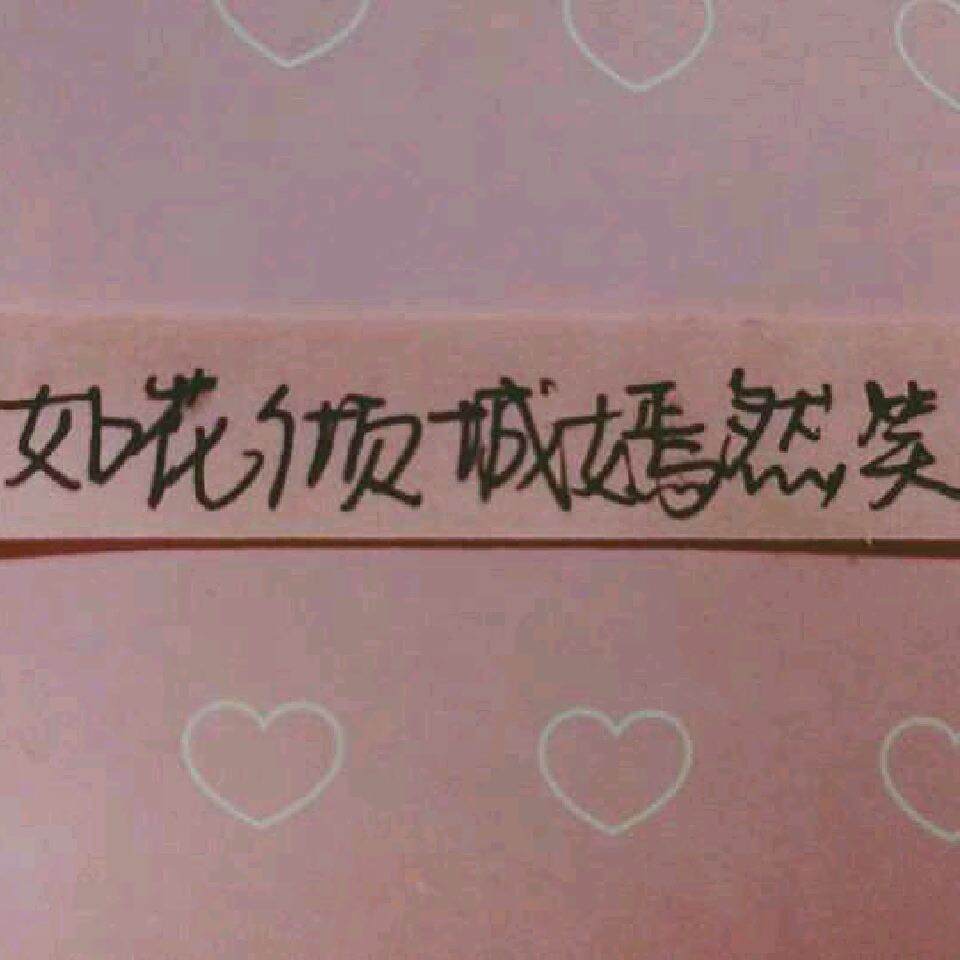 如花倾城嫣然笑